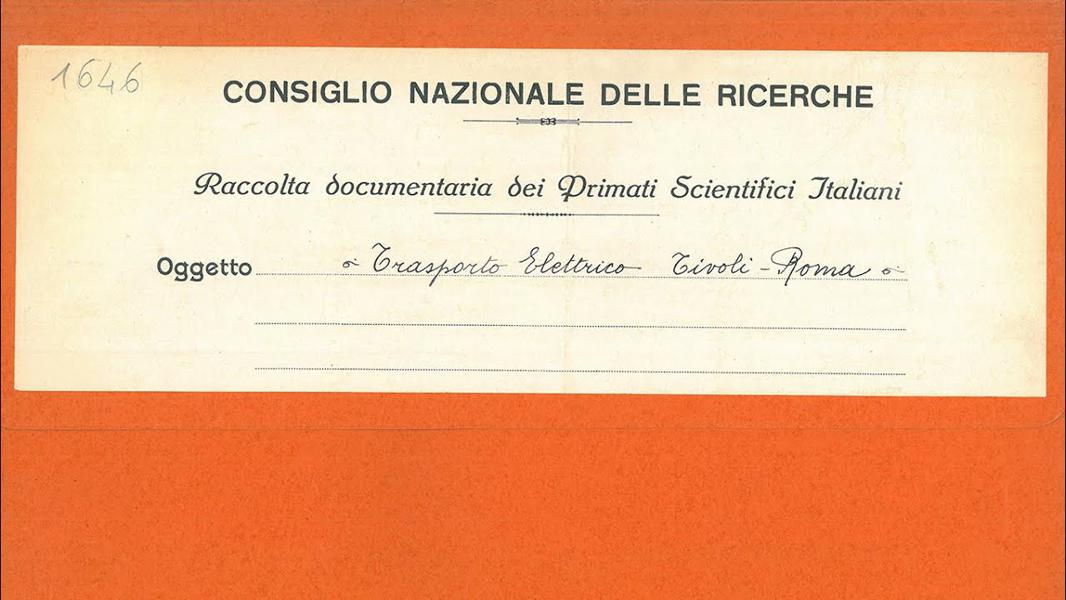 1646
CONSIGLIO NAZIONALE DELLE RICERCHE
Raccolta documentaria dei Primati Scientifici Italiani
Oggetto Trasporto Elettrico Tivoli - Roma